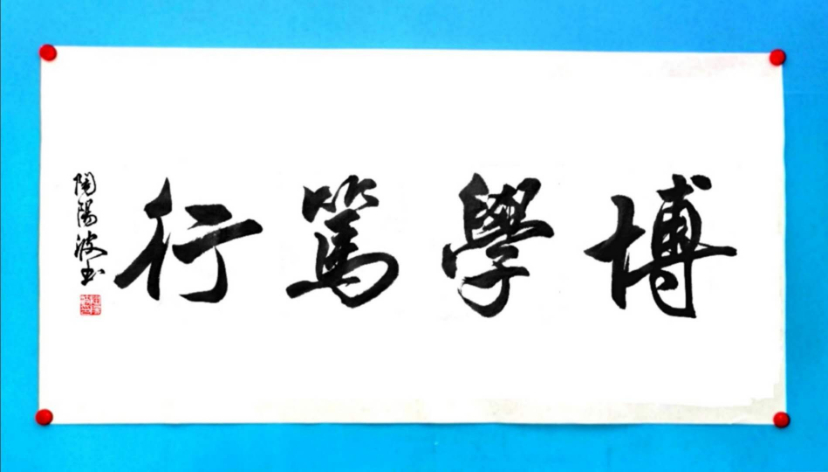 博學篤行
陶陽波书